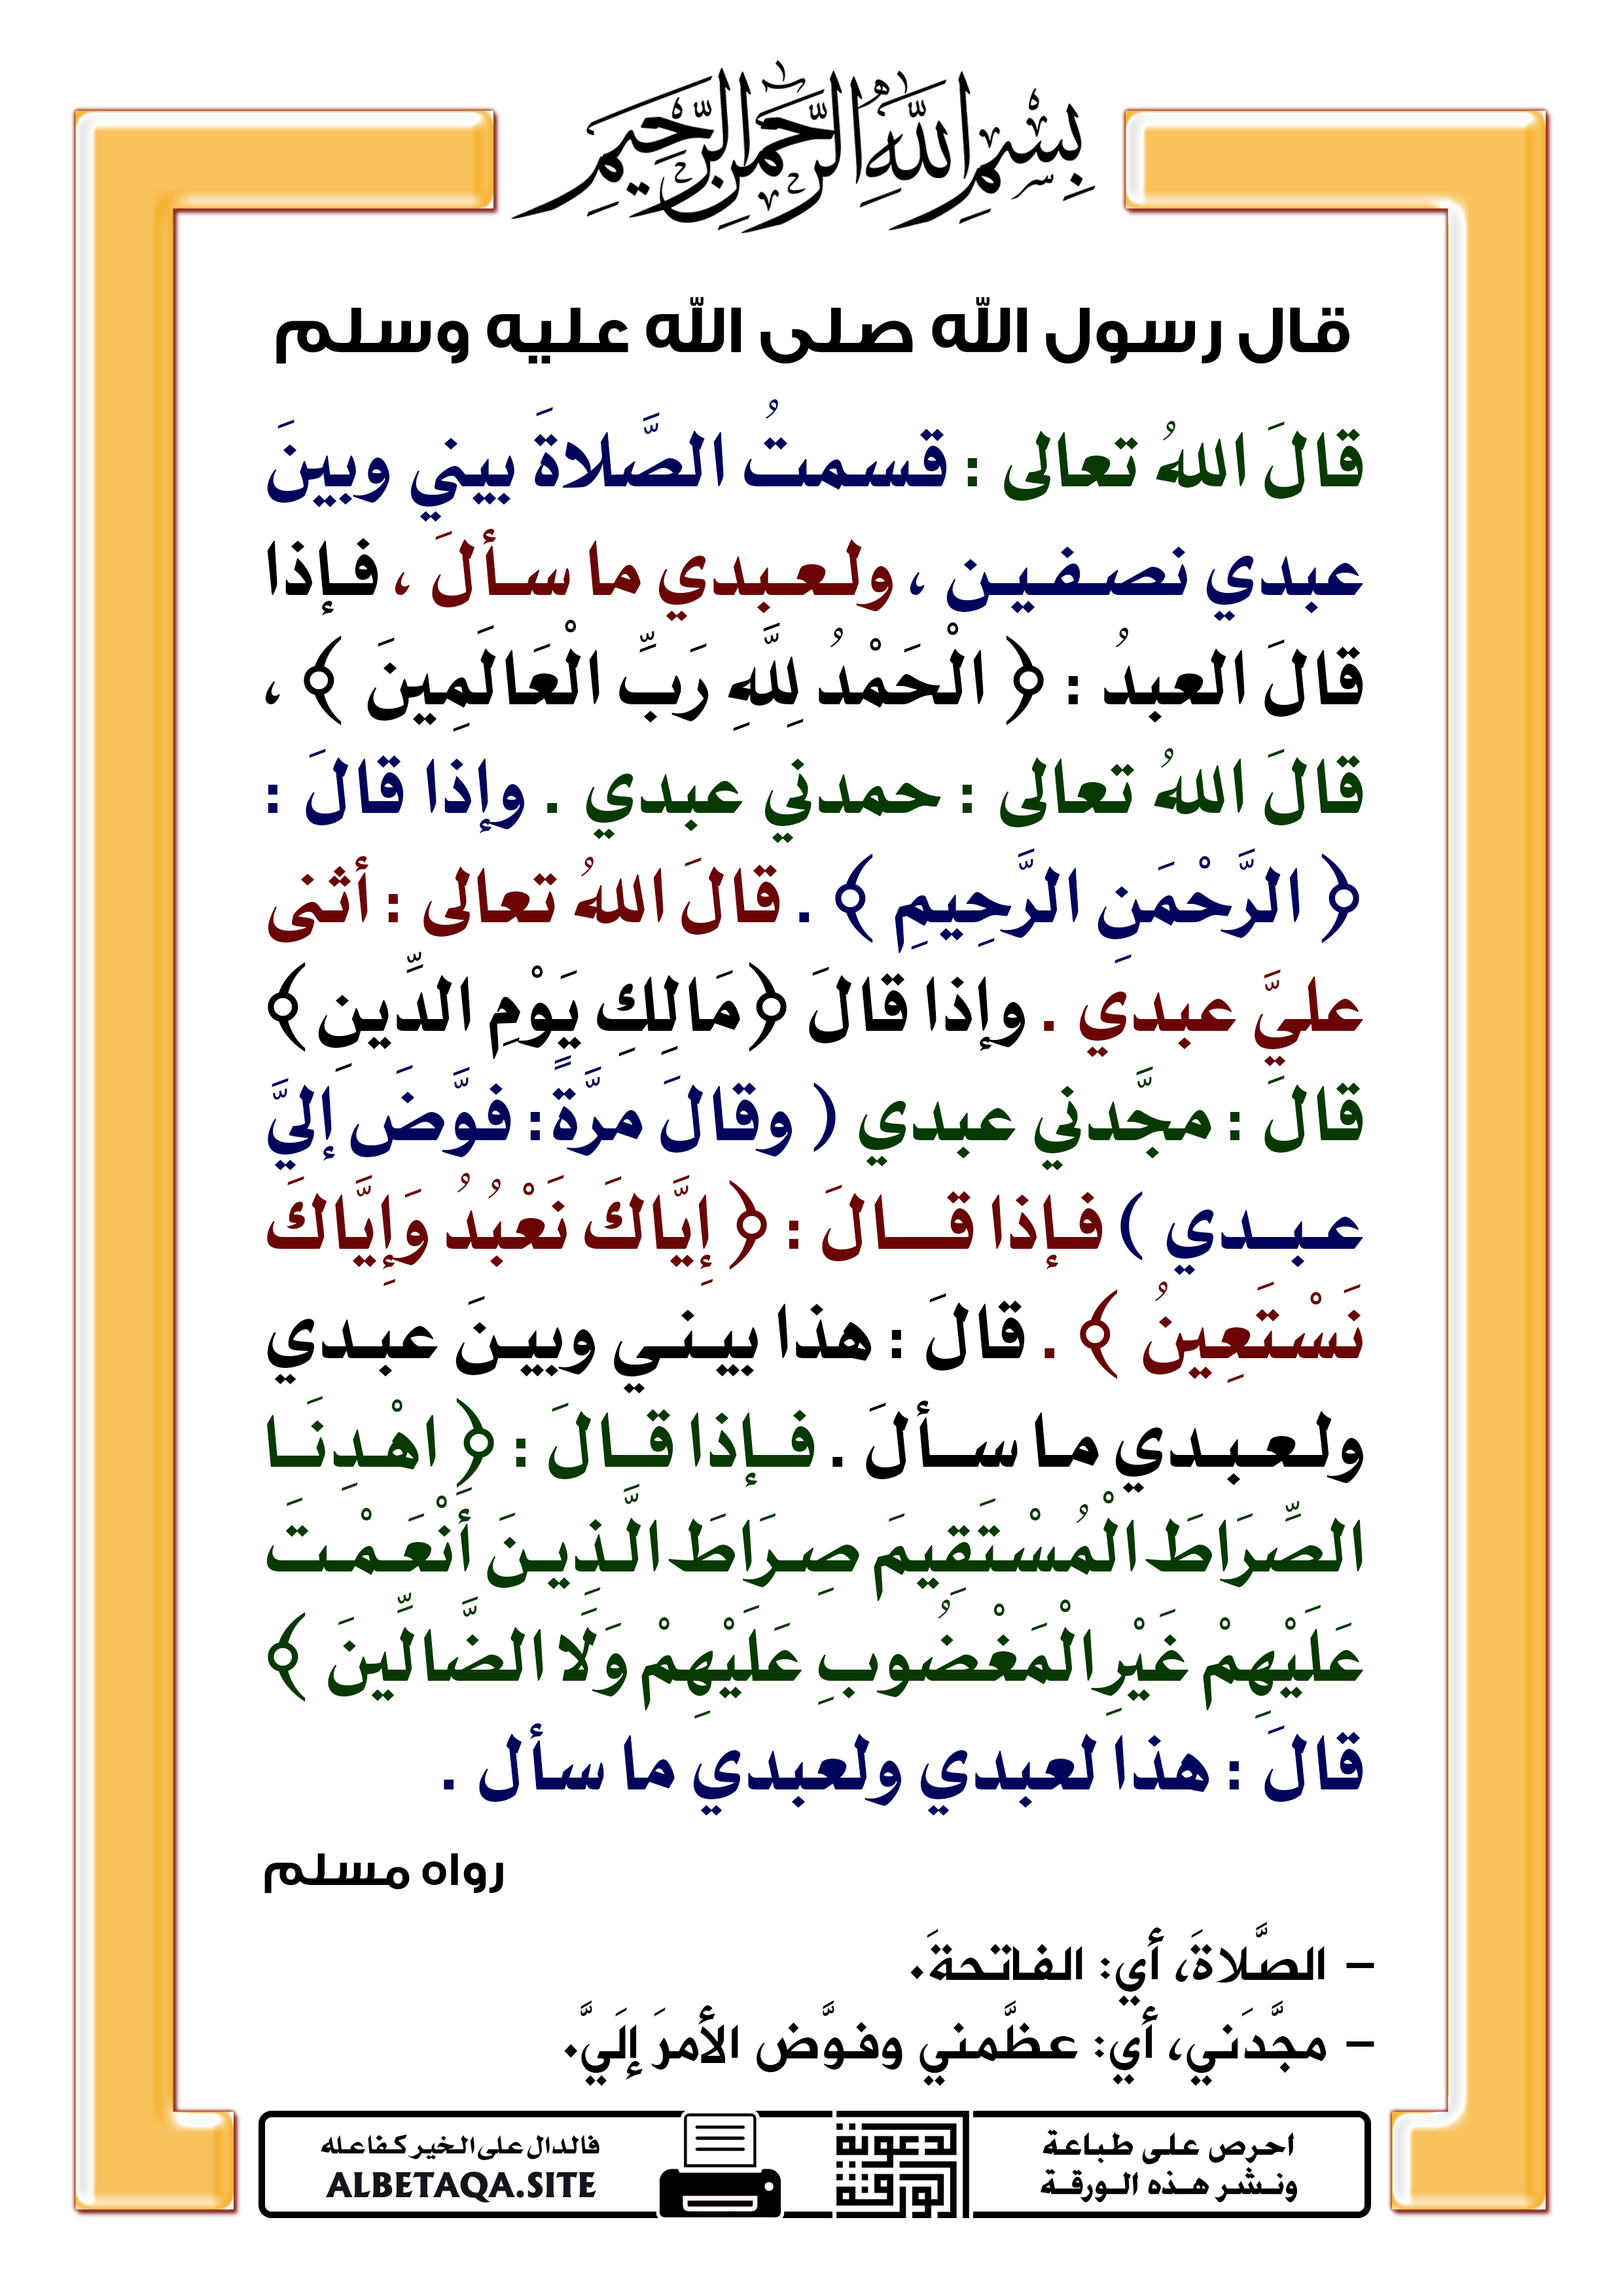 بِسْمِ اللَّهِ الرَّحْمَنِ الرَّحِيمِ
قال رسول الله صلى الله عليه وسلم
قالَ اللهُ تعالى : قسمتُ الصَّلاةَ بيني وبينَ
عبدي نصفين ، ولعبدي ما سألَ ، فإذا
قالَ العبدُ : ﴿ الْحَمْدُ لِلَّهِ رَبِّ الْعَالَمِينَ ﴾ ،
قالَ اللهُ تعالى : حمدني عبدي . وإذا قالَ :
﴿ الرَّحْمَنِ الرَّحِيمِ ﴾ . قالَ اللهُ تعالى : أثنى
عليَّ عبدي . وإذا قالَ ﴿مَالِكِ يَوْمِ الدِّينِ﴾
قالَ : مجَّدني عبدي ( وقالَ مرَّةً : فوَّضَ إليَّ
عبدي ) فإذا قالَ : ﴿ إِيَّاكَ نَعْبُدُ وَإِيَّاكَ
نَسْتَعِينُ ﴾ . قالَ : هذا بيني وبينَ عبدي
ولعبدي ما سألَ . فإذا قالَ : ﴿ اهْدِنَا
الصِّرَاطَ الْمُسْتَقِيمَ صِرَاطَ الَّذِينَ أَنْعَمْتَ
عَلَيْهِمْ غَيْرِ الْمَغْضُوبِ عَلَيْهِمْ وَلَا الضَّالِّينَ ﴾
قالَ : هذا لعبدي ولعبدي ما سأل .
رواه مسلم
– الصَّلاةَ، أي: الفاتحةَ.
– مجَّدَني، أي: عظَّمني وفوَّض الأمرَ إلَيَّ.
احرص على طباعة
ونشر هذه الورقة
الدعوية
الورقة
فالدال على الخير كفاعله
ALBETAQA.SITE